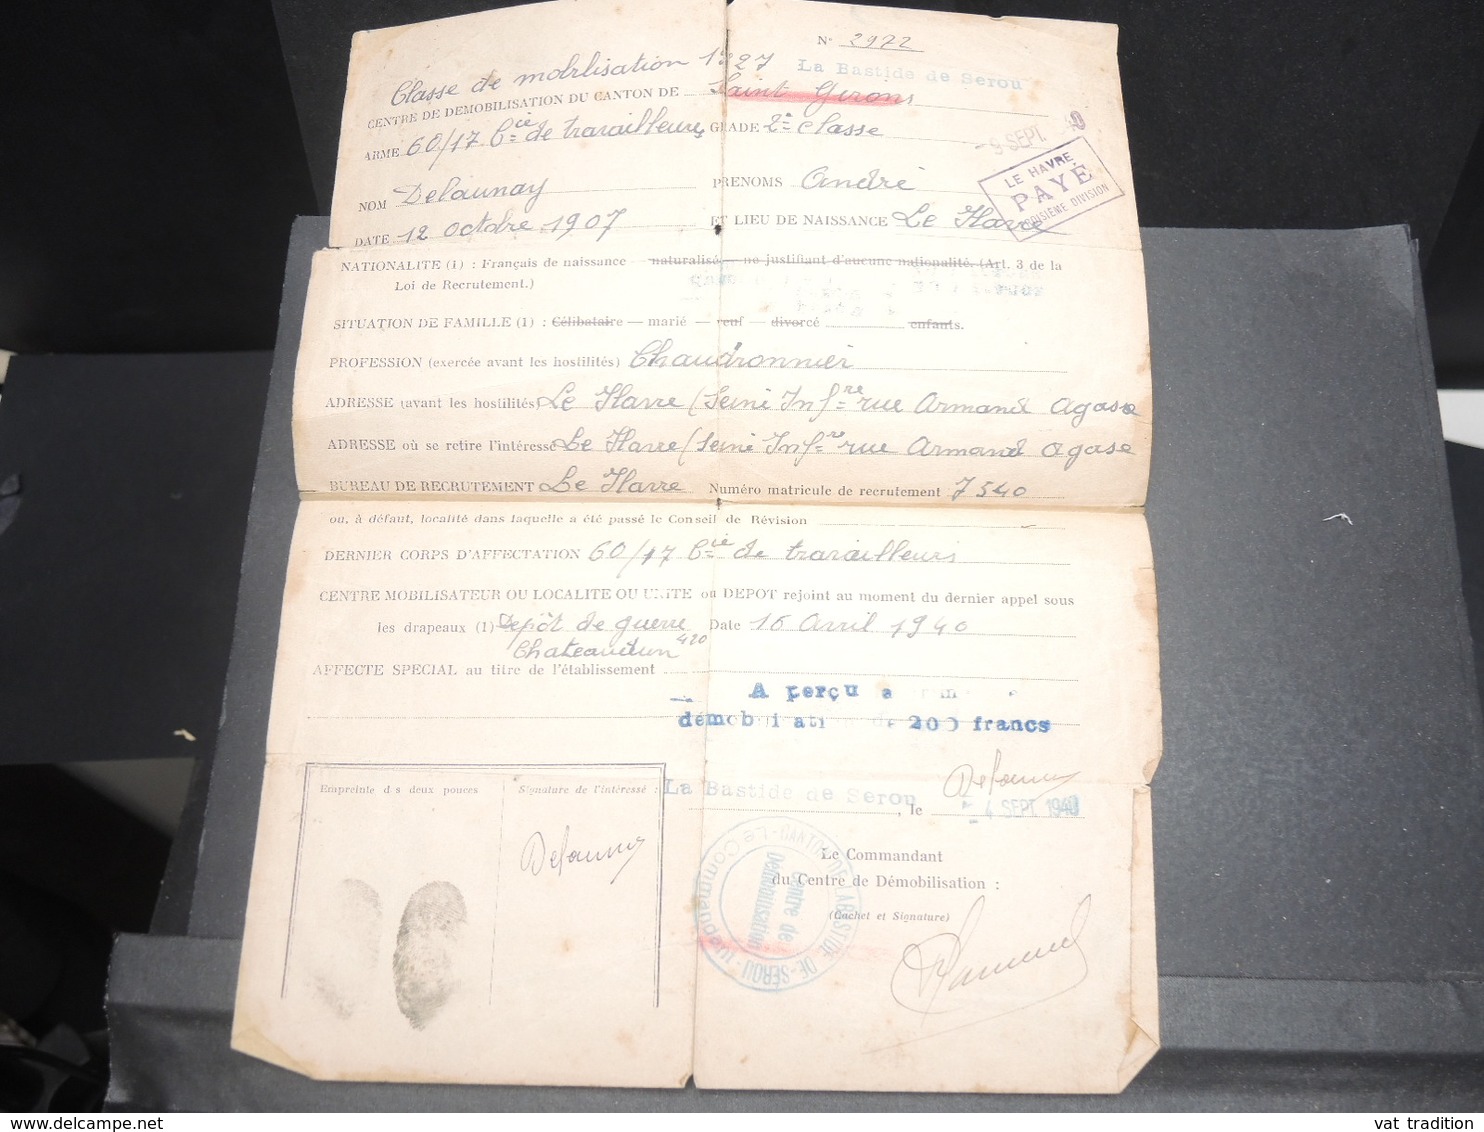 N° 2972
Classe de mobilisation 1927
La Bastide de Serou
CENTRE DE DEMOBILISATION DU CANTON DE Saint Girons
ARME 60/17 Cie de travailleurs GRADE 2e classe
- 9 SEPT. 40
LE HAVRE
PAYÉ
TROISIÈME DIVISION
NOM Delaunay PRENOMS André
DATE 12 Octobre 1907 ET LIEU DE NAISSANCE Le Havre
NATIONALITE (1) : Français de naissance — naturalisé — ne justifiant d'aucune nationalité. (Art. 3 de la
Loi de Recrutement.)
SITUATION DE FAMILLE (1) : Célibataire — marié — veuf — divorcé enfants.
PROFESSION (exercée avant les hostilités) Chaudronnier
ADRESSE (avant les hostilités) Le Havre (Seine Infre rue Armand Agase
ADRESSE où se retire l'intéressé Le Havre (Seine Infre rue Armand Agase
BUREAU DE RECRUTEMENT Le Havre Numéro matricule de recrutement 7540
ou, à défaut, localité dans laquelle a été passé le Conseil de Révision
DERNIER CORPS D'AFFECTATION 60/17 Cie de travailleurs
CENTRE MOBILISATEUR OU LOCALITE OU UNITE ou DEPOT rejoint au moment du dernier appel sous
les drapeaux (1) Dépôt de guerre Date 16 Avril 1940
Chateaudun 420
AFFECTE SPECIAL au titre de l'établissement
A perçu
200 francs
Empreinte des deux pouces
Signature de l'intéressé :
Delaunay
La Bastide de Serou, le - 4 SEPT. 1940
Delaunay
Le Commandant
du Centre de Démobilisation :
(Cachet et Signature)
CANTON DE LABASTIDE-DE-SÉROU
Le Commandant
Centre de
Démobilisation
vat tradition